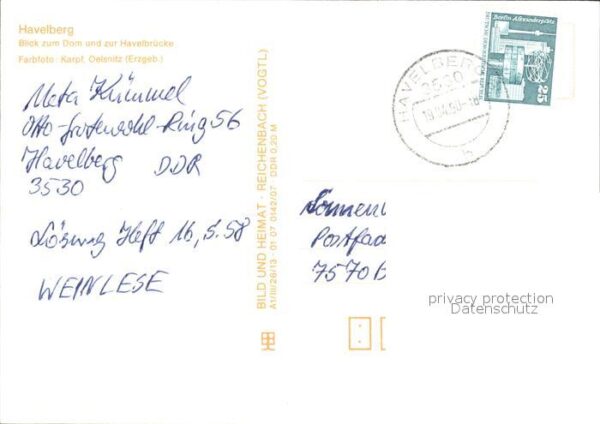 Havelberg
Blick zum Dom und zur Havelbrücke
Farbfoto: Karpf, Oelsnitz (Erzgeb.)
Meta Kümmel
Otto-Grotewohl-Ring 56
Havelberg DDR
3530
Lösung Heft 16, S. 58
WEINLESE
BILD UND HEIMAT · REICHENBACH (VOGTL)
A1/III/26/13 · 01 07 0142/07 · DDR 0,20 M
Berlin, Alexanderplatz
25
HAVELBERG
3530
Postfac
7570 B
privacy protection
Datenschutz